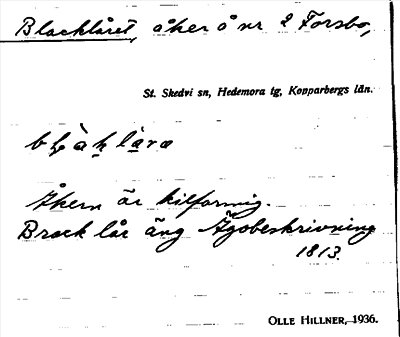 Blacklåret, åker å nr 2 Forsbo,
St. Skedvi sn, Hedemora tg, Kopparbergs län.
Åkern är kilformig.
Brack lår äng Ägobeskrivning
1813.
OLLE HILLNER, 1936.